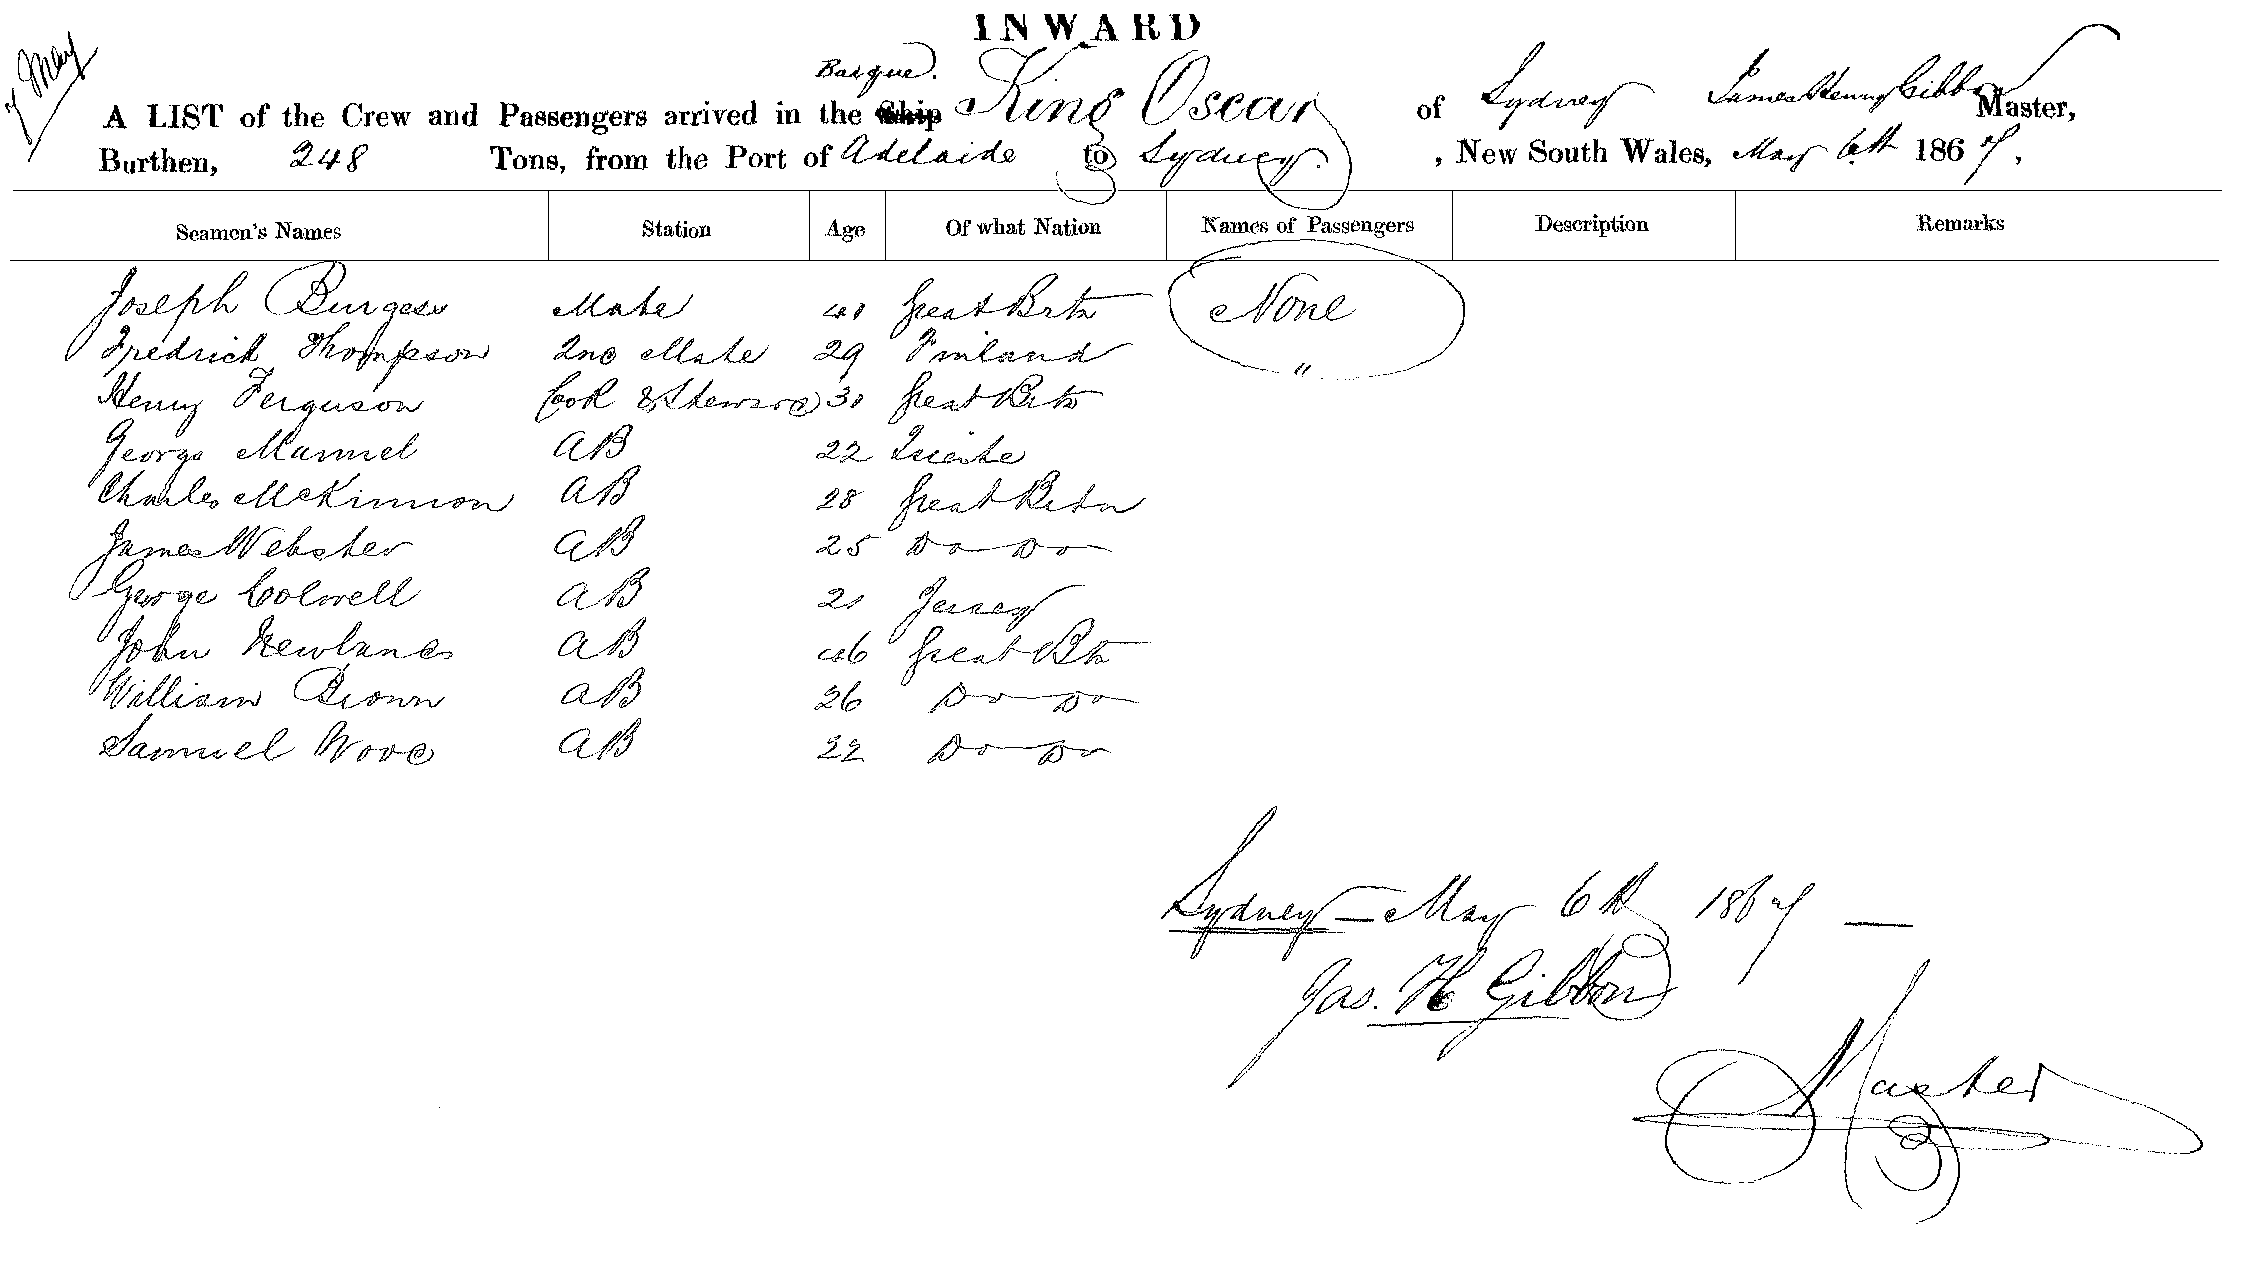 INWARD
7 May
Barque.
A LIST of the Crew and Passengers arrived in the Ship King Oscar of Sydney James Henry Gibbon Master,
Burthen, 248 Tons, from the Port of Adelaide to Sydney. , New South Wales, May 6th 1867,
Seamen's Names Station Age Of what Nation Names of Passengers Description Remarks
Joseph Burgess Mate 40 Great Brtn None
Fredrick Thompson 2nd Mate 29 Finland "
Henry Ferguson Cook & Steward 30 Great Brtn
George Manuel AB 22 Trieste
Charles McKinnon AB 28 Great Britn
James Webster AB 25 Do Do
George Colwell AB 21 Jersey
John Newlands AB 46 Great Brtn
William Brown AB 26 Do Do
Samuel Wood AB 22 Do Do
Sydney - May 6th 1867 -
Jas. H Gibbon
Master